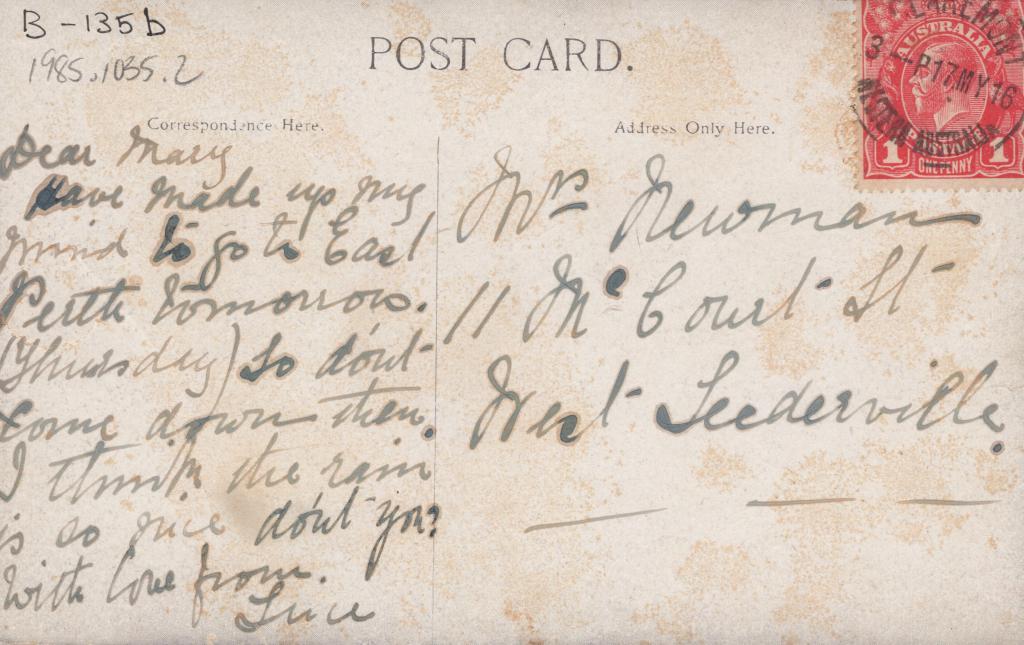 B-135b
1985.1035.2
POST CARD.
CLAREMONT
3 -P17MY16
AUSTRALIA
1 ONE PENNY 1
Correspondence Here.
Address Only Here.
Dear Mary
Have made up my
mind to go to East
Perth tomorrow.
(Thursday) so don't
come down then.
I think the rain
is so nice don't you?
With love from.
Mrs Newman
11 McCourt St
West Leederville.